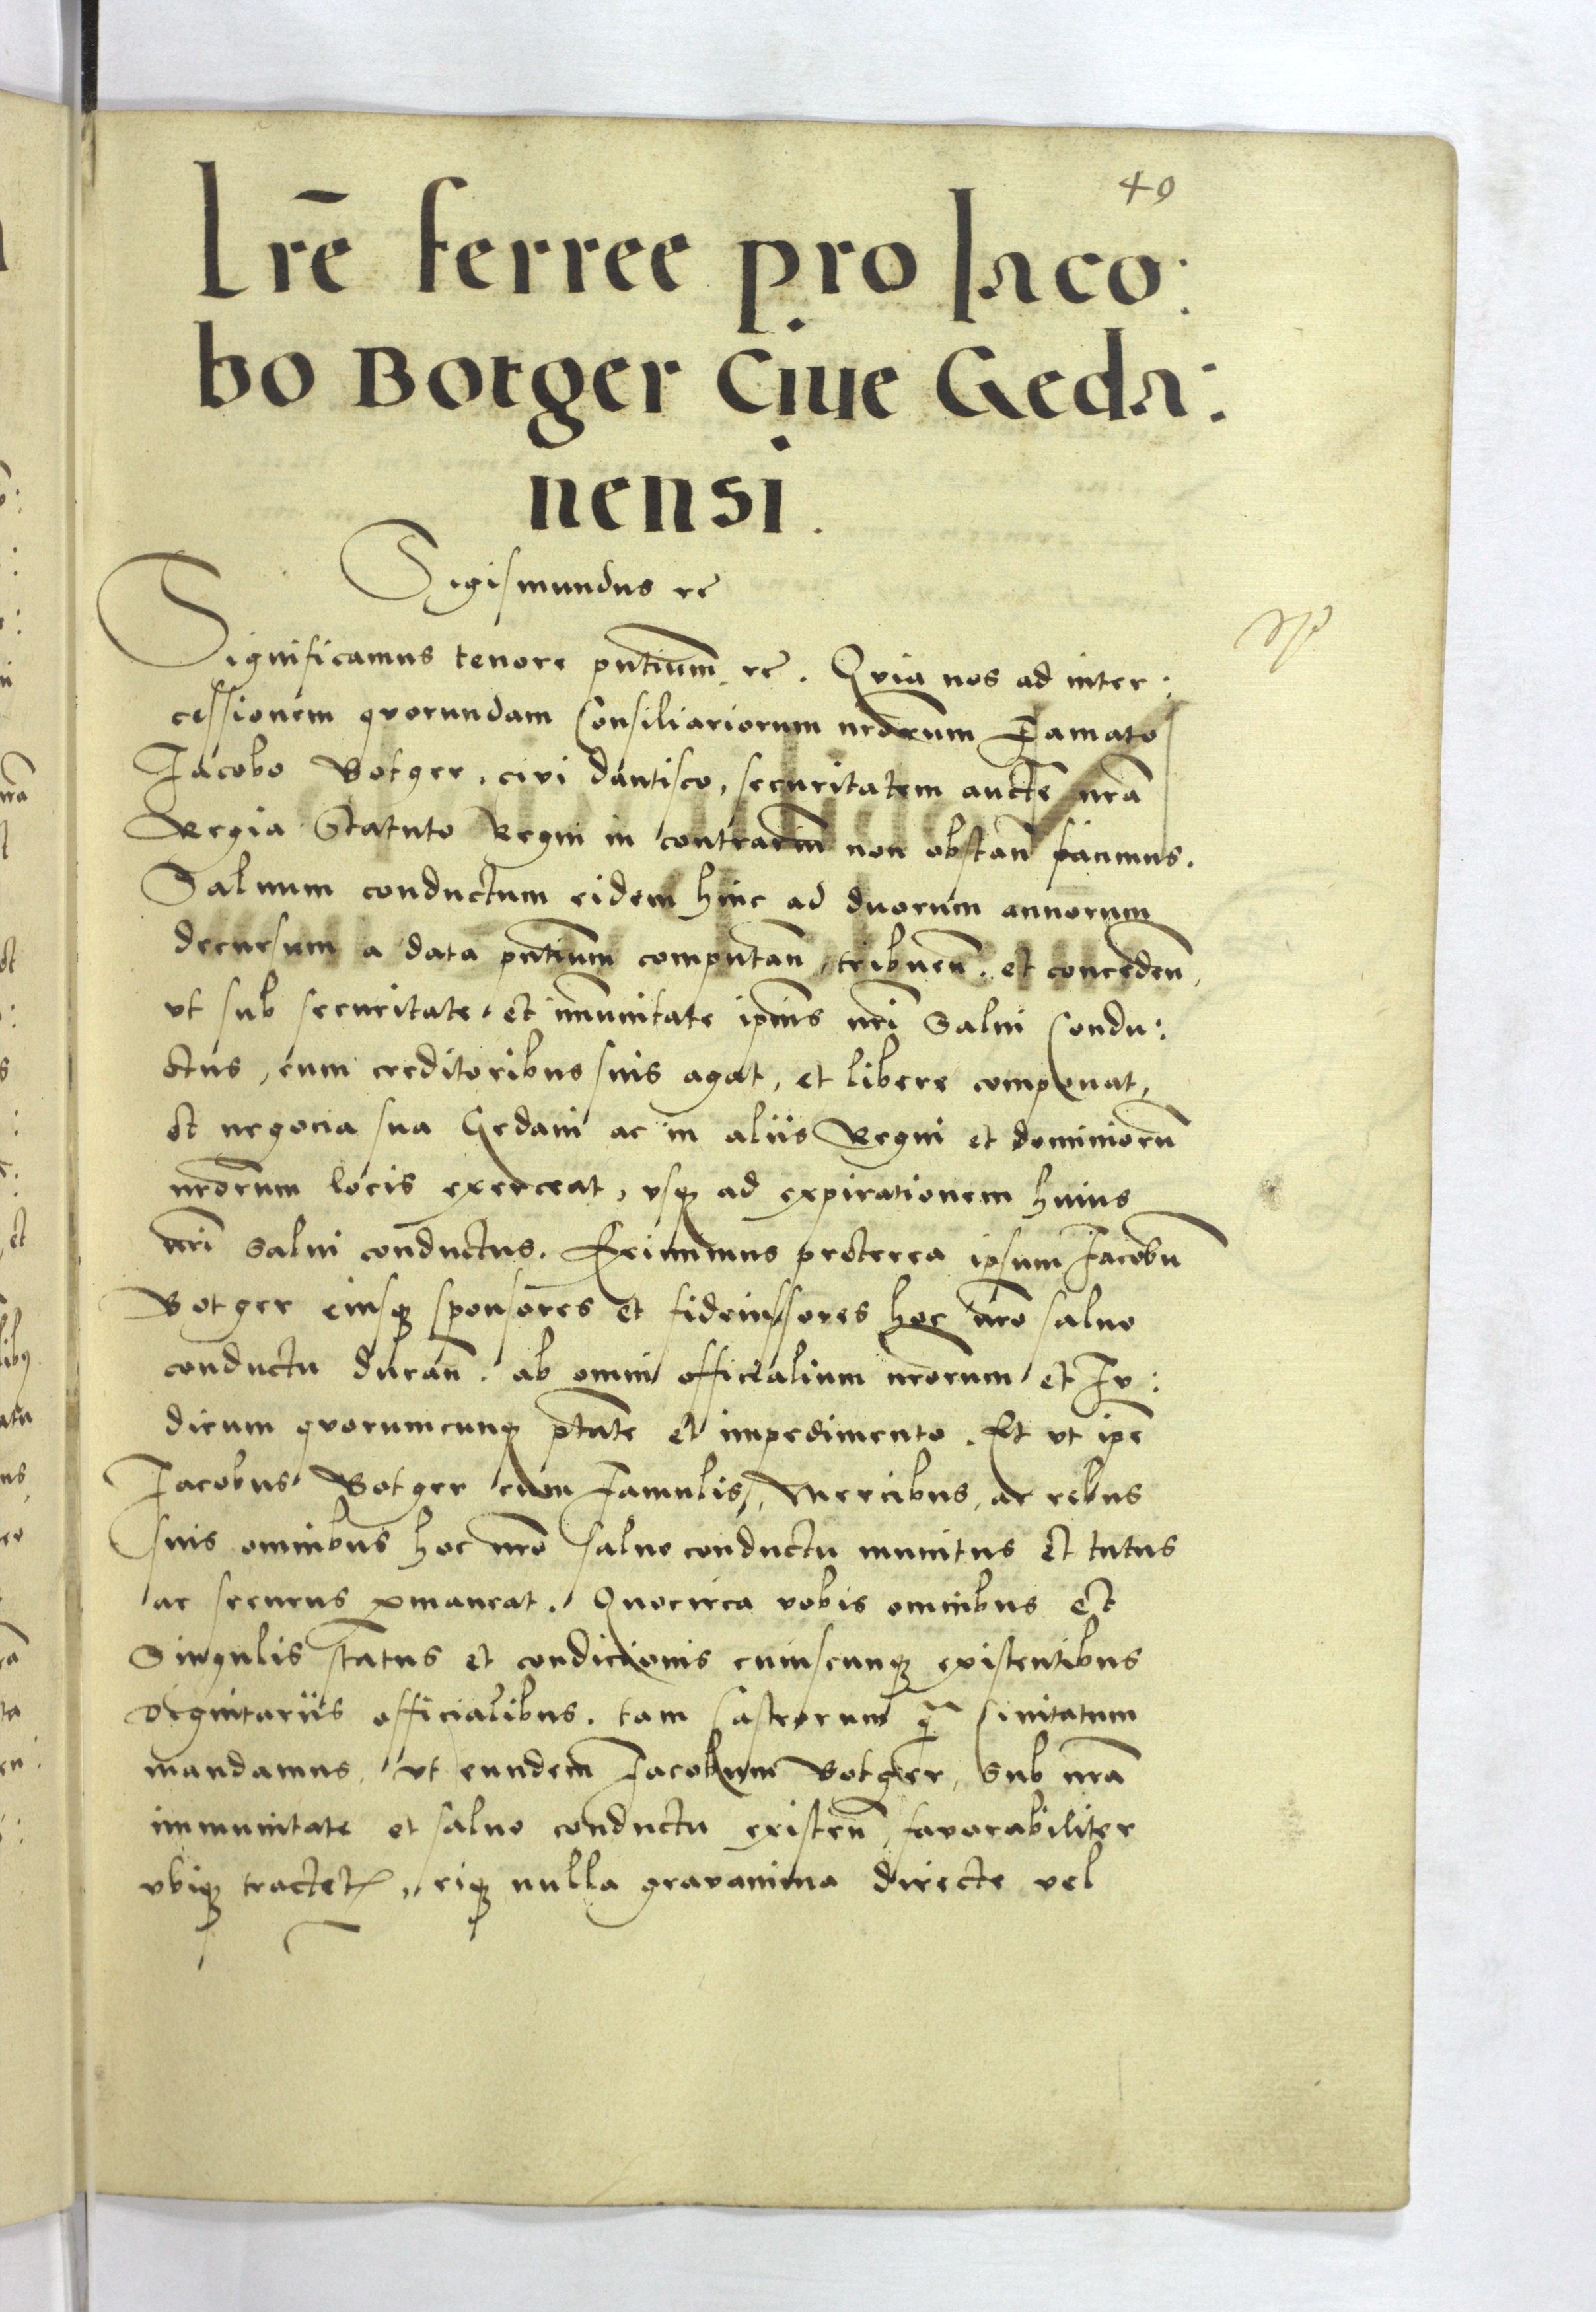 40
Lrē ferree pro Iaco:
bo Botger Ciue Geda:
nensi.
Sigismundus rē
Significamus tenore pntium rē. Quia nos ad inter:
cessionem quorundam Consiliariorum nrorum Famato
Iacobo Botger, civi dantisco, securitatem aucte nrā
Regia Statuto Regni in contrarim non obstan̄
Saluum conductum eidem hinc ad duorum annorum
decursum a data pntium computan̄, tribuen̄. et conceden̄,
vt sub securitate et imunitate ipius nri Salui Condu:
ctus, cum creditoribus suis agat, et libere componat,
et negocia sua Gedani ac in aliis Regni et dominiorū
nrorum locis exerceat, vsq ad expirationem huius
nri Salui conductus. Eximimus preterea ipsum Iacobū
Botger eiusq sponsores et fideiussores hoc nro saluo
conductu duran̄. ab omni officialium nrorum et Iu:
dicum quorumcunq ptate et impedimento. Et vt ipe
Iacobus Botger cum Famulis, Mercibus, ac rebus
suis omnibus hoc nro saluo conductu munitus et tutus
ac securus pmaneat. Quocirca vobis omnibus et
Singulis status et condicionis cuiuscunq existentibus
Dignitariis officialibus. tam Castrorum q̄ Ciuitatum
mandamus, vt eundem Iacobum Botger, Sub nrā
immunitate et saluo conductu existen̄, favorabiliter
vbiq tractet, eiq nulla gravamina directe vel